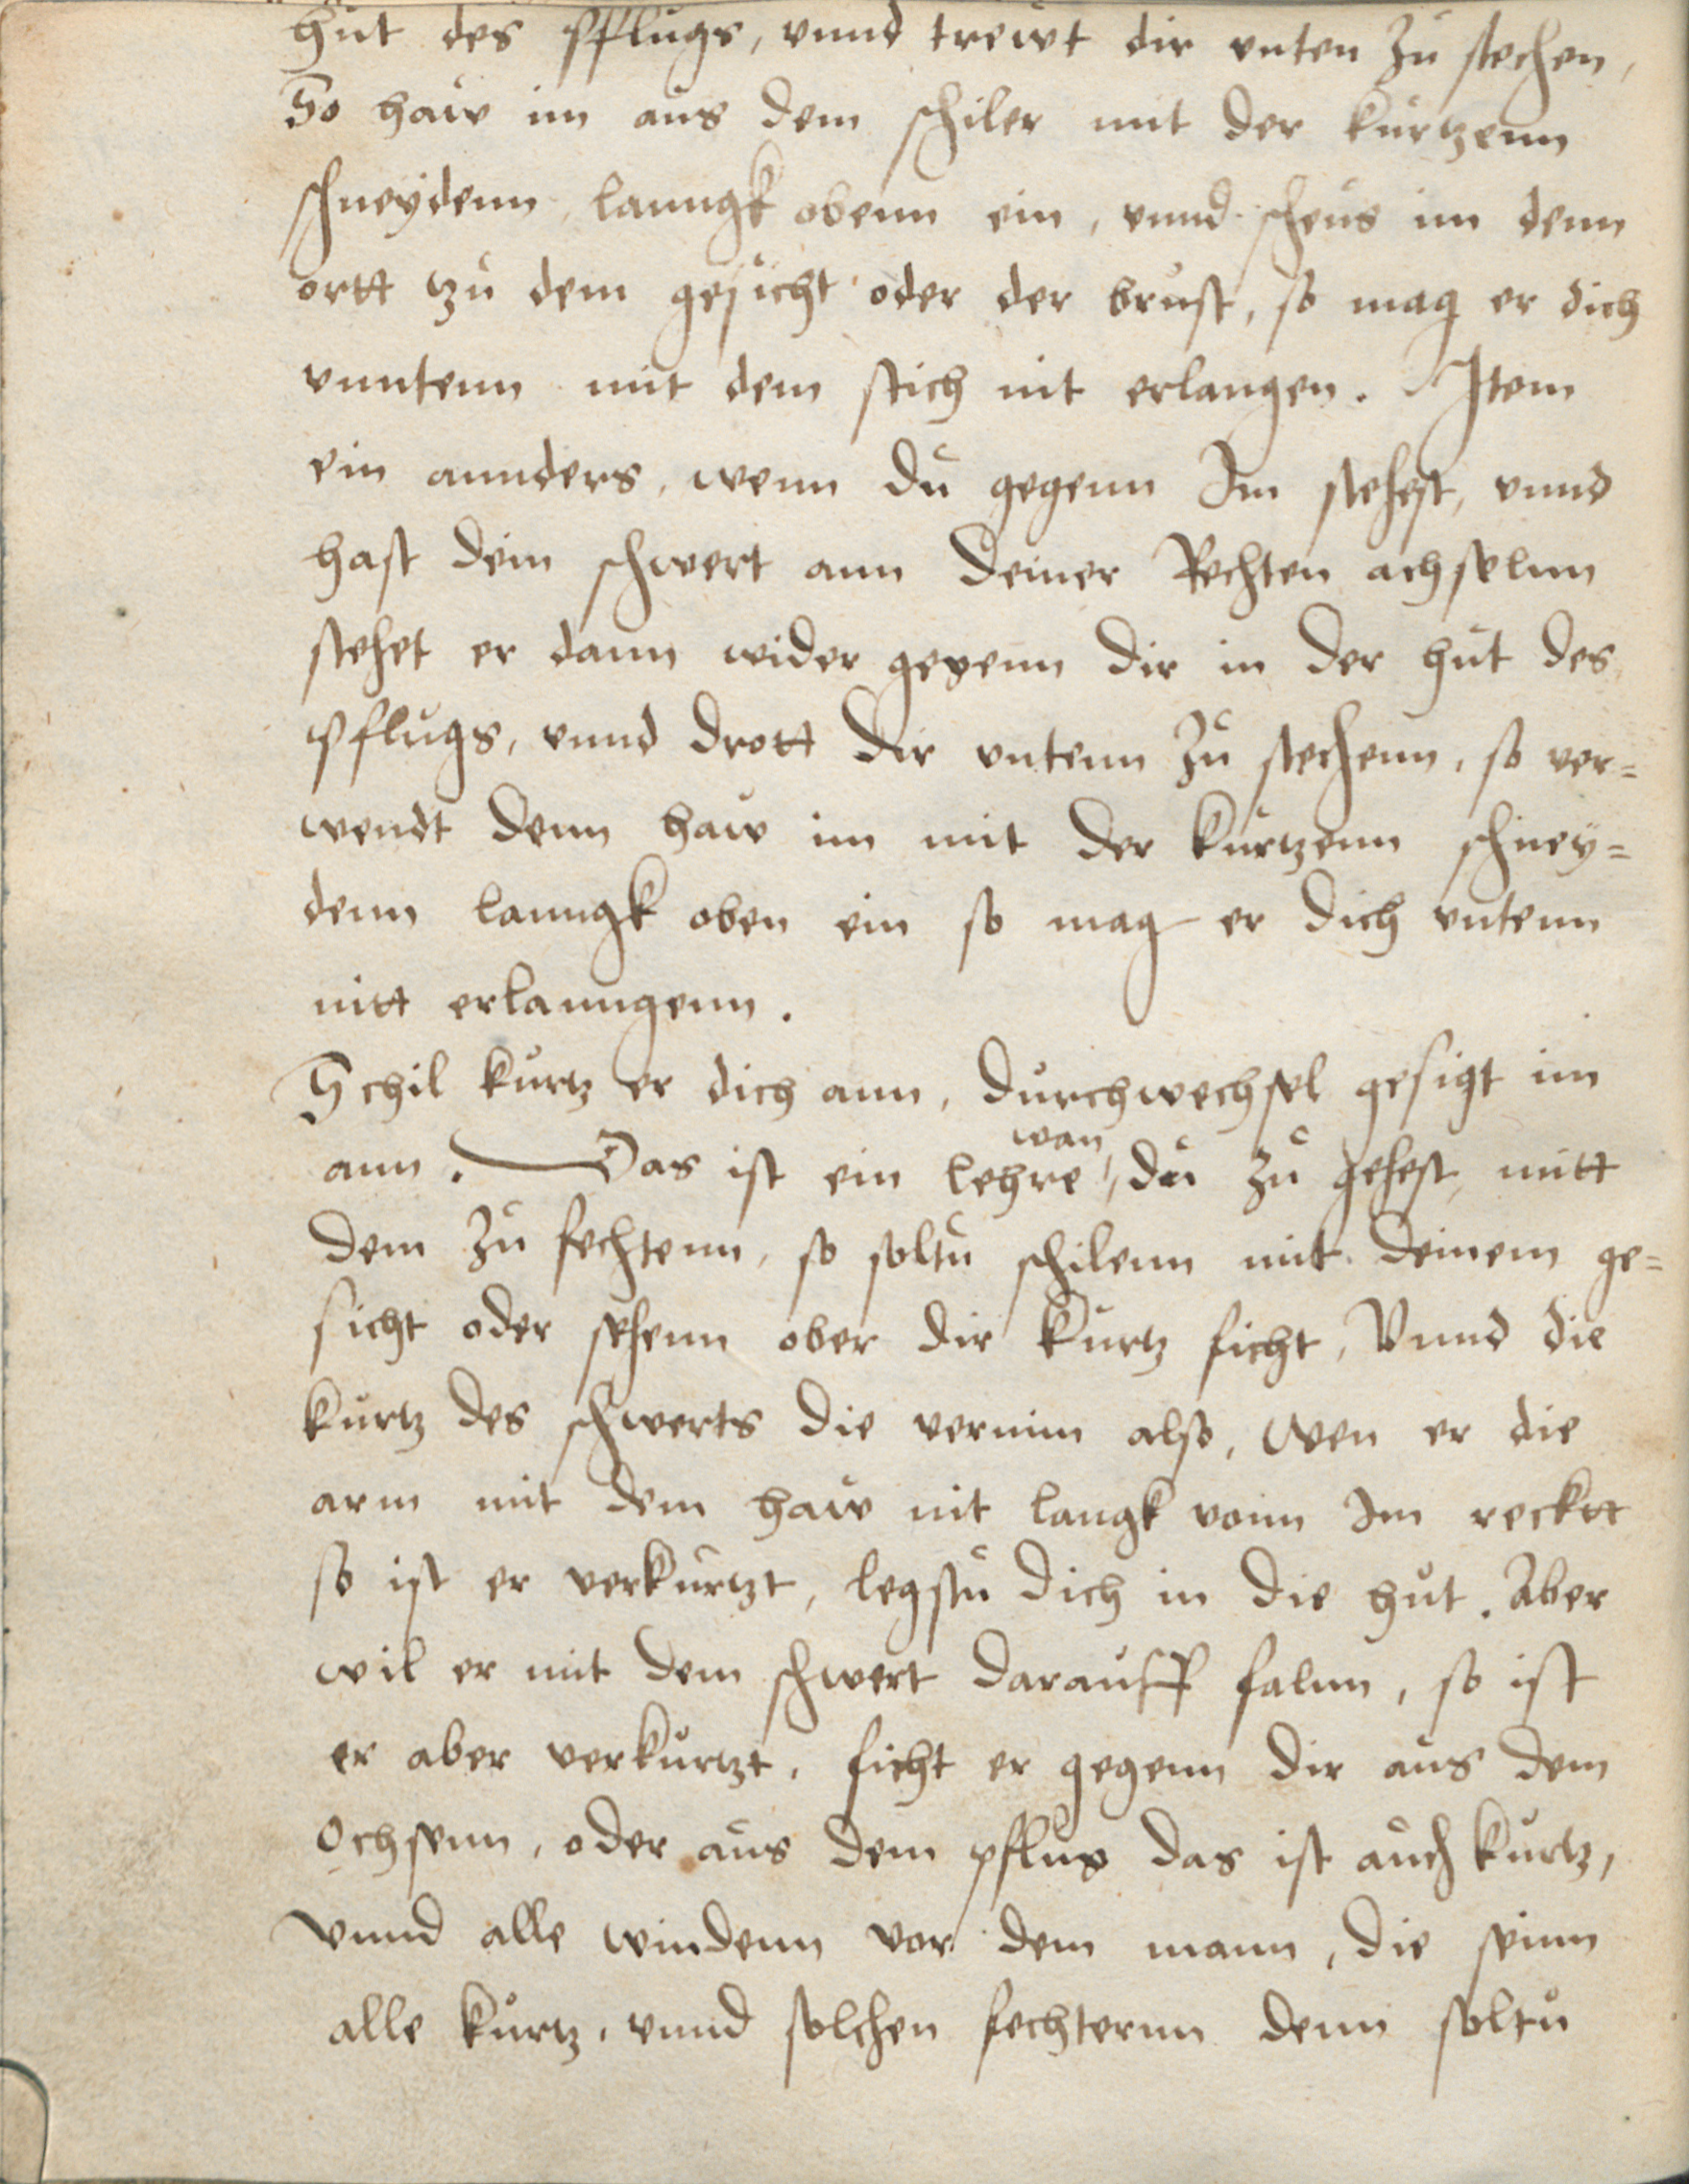 hut des pflugs, vnnd trewt dir vnten zu stechen,
So haw im aus dem schiler mit der kurtzenn
schneydenn lanngk obenn ein, vnnd scheus im denn
ortt tzu dem gesicht oder der brust, so mag er dich
vnntenn mit dem stich nit erlangen. Item
ein annders, wenn du gegenn Im stehest, vnnd
hast dein schwert ann deiner Rechten achselnn
stehet er dann wider gegenn dir in der hut des
pflugs, vnnd drott dir vntenn zu stechenn, so ver=
wendt denn haw im mit der kurtzenn schney=
denn lanngk oben ein so mag er dich vntenn
nitt erlanngenn.
Schil kurtz er dich ann, durchwechsel gesigt im
ann. Das ist ein lehre, wan du zu gehest, mitt
dem zu fechtenn, so soltu schilenn mit deinem ge=
sicht oder sehenn ober dir kurtz ficht, Vnnd die
kurtz des schwerts die vernim also, wen er die
arm mit dem haw nit langk vonn Im recktt
so ist er verkurtzt, legstu dich in die hut. Aber
wil er mit dem schwert darauff falnn, so ist
er aber verkurtzt, ficht er gegenn dir aus dem
Ochsenn, oder aus dem pflug das ist auch kurtz,
vnnd alle windenn vor dem mann, die seinn
alle kurtz, vnnd solchen fechternn denn soltu